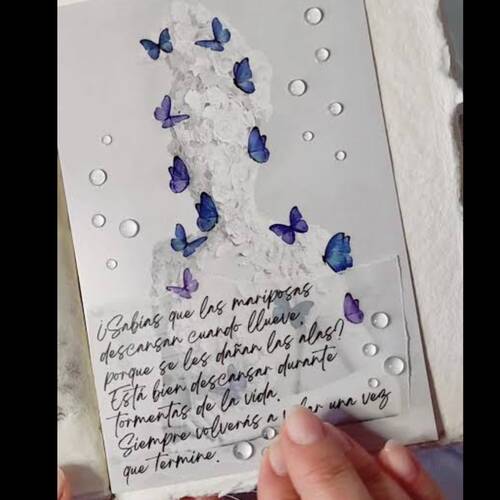 ¿Sabías que las mariposas
descansan cuando llueve,
porque se les dañan las alas?
Está bien descansar durante
tormentas de la vida.
Siempre volverás a volar una vez
que termine.